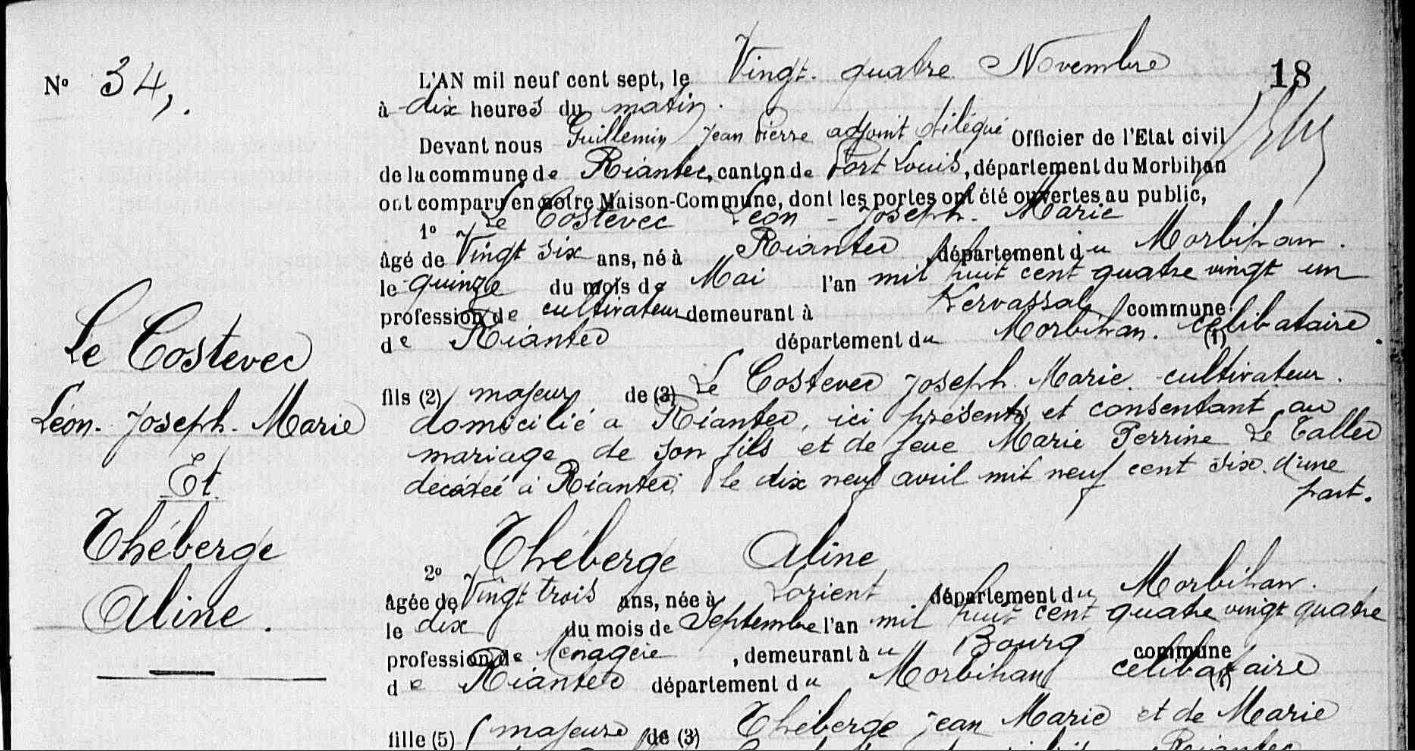 N° 34,.
L'AN mil neuf cent sept, le Vingt. quatre Novembre
18
à dix heures du matin.
Devant nous Guillemin Jean Pierre adjoint délégué Officier de l'Etat civil
de la commune de Riantec, canton de Port Louis, département du Morbihan
ont comparu en notre Maison-Commune, dont les portes ont été ouvertes au public,
1° Le Costevec Léon - Joseph - Marie
âgé de Vingt six ans, né à Riantec département du Morbihan.
le quinze du mois de Mai l'an mil huit cent quatre vingt un
profession de cultivateur demeurant à Kervassal commune
de Riantec département du Morbihan. célibataire (1).
fils (2) majeur de (3) Le Costevec Joseph Marie cultivateur.
domicilié à Riantec, ici présent et consentant au
mariage de son fils et de feue Marie Perrine Le Tallec
décédée à Riantec, le dix neuf avril mil neuf cent six. d'une
part.
Le Costevec
Léon - Joseph - Marie
Et
Théberge
Aline.
2° Théberge Aline
âgée de Vingt trois ans, née à Lorient département du Morbihan.
le dix du mois de Septembre l'an mil huit cent quatre vingt quatre
profession de Ménagère, demeurant au Bourg commune
de Riantec département du Morbihan célibataire
fille (5) majeure de (3) Théberge Jean Marie et de Marie